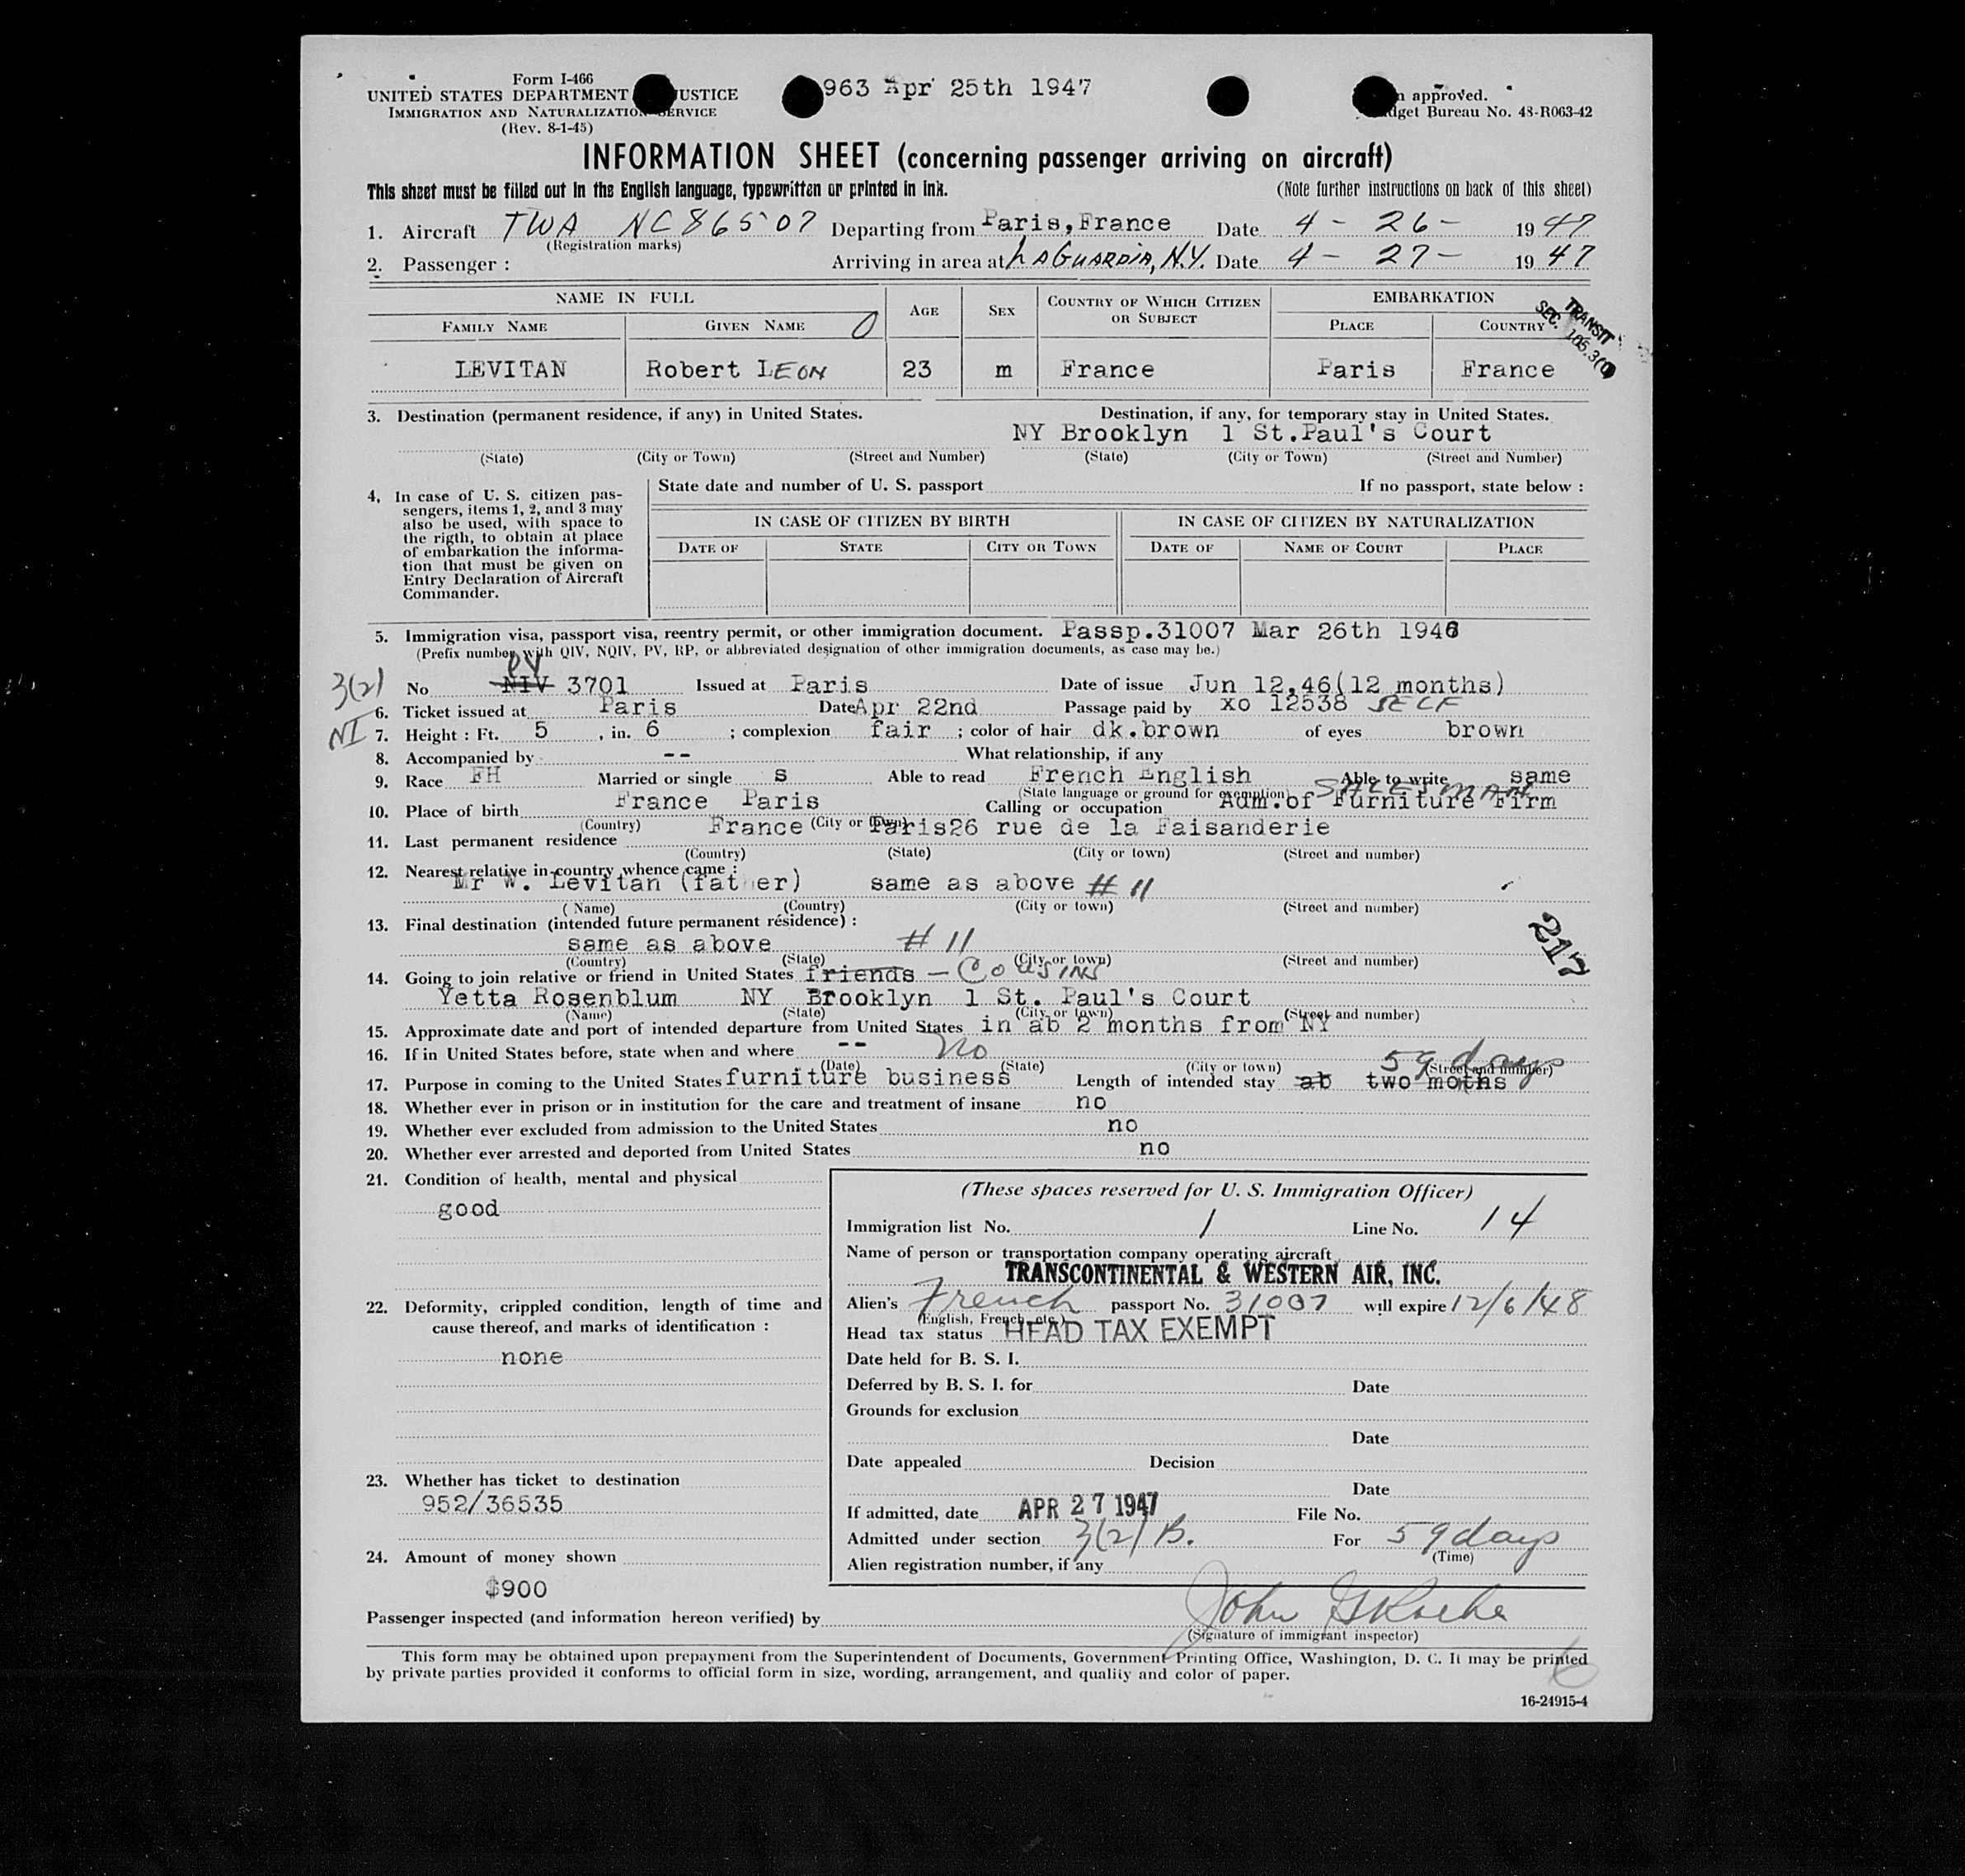 Form I-466
UNITED STATES DEPARTMENT USTICE
IMMIGRATION AND NATURALIZATION SERVICE
(Rev. 8-1-45)
963 Apr 25th 1947
approved.
dget Bureau No. 43-R063-42
INFORMATION SHEET (concerning passenger arriving on aircraft)
This sheet must be filled out in the English language, typewritten or printed in ink. (Note further instructions on back of this sheet)
1. Aircraft TWA NC86507 Departing from Paris,France Date 4 - 26 - 1947
(Registration marks)
2. Passenger : Arriving in area at LAGUARDIA, N.Y. Date 4 - 27 - 1947
NAME IN FULL AGE SEX COUNTRY OF WHICH CITIZEN OR SUBJECT EMBARKATION
FAMILY NAME GIVEN NAME PLACE COUNTRY
TRANSIT
SEC. 105.3(
LEVITAN Robert LEON 23 m France Paris France
3. Destination (permanent residence, if any) in United States. Destination, if any, for temporary stay in United States.
NY Brooklyn 1 St.Paul's Court
(State) (City or Town) (Street and Number) (State) (City or Town) (Street and Number)
4, In case of U. S. citizen pas-
sengers, items 1, 2, and 3 may
also be used, with space to
the rigth, to obtain at place
of embarkation the informa-
tion that must be given on
Entry Declaration of Aircraft
Commander.
State date and number of U. S. passport If no passport, state below :
IN CASE OF CITIZEN BY BIRTH IN CASE OF CITIZEN BY NATURALIZATION
DATE OF STATE CITY OR TOWN DATE OF NAME OF COURT PLACE
5. Immigration visa, passport visa, reentry permit, or other immigration document. Passp.31007 Mar 26th 1946
(Prefix number with QIV, NQIV, PV, RP, or abbreviated designation of other immigration documents, as case may be.)
PV
3(2) No NIV 3701 Issued at Paris Date of issue Jun 12,46(12 months)
6. Ticket issued at Paris Date Apr 22nd Passage paid by xo 12538 SELF
NI 7. Height : Ft. 5 , in. 6 ; complexion fair ; color of hair dk.brown of eyes brown
8. Accompanied by -- What relationship, if any
9. Race FH Married or single s Able to read French English Able to write same
(State language or ground for exemption) SALESMAN
10. Place of birth France Paris Calling or occupation Adm.of Furniture Firm
(Country) (City or town)
11. Last permanent residence France Paris26 rue de la Faisanderie
(Country) (State) (City or town) (Street and number)
12. Nearest relative in country whence came :
Mr W. Levitan (father) same as above # 11
( Name) (Country) (City or town) (Street and number)
13. Final destination (intended future permanent résidence) :
same as above # 11
217
(Country) (State) (City or town) (Street and number)
14. Going to join relative or friend in United States friends — COUSINS
Yetta Rosenblum NY Brooklyn 1 St. Paul's Court
(Name) (State) (City or town) (Street and number)
15. Approximate date and port of intended departure from United States in ab 2 months from NY
16. If in United States before, state when and where -- No
(Date) (State) (City or town) (Street and number)
59 days
17. Purpose in coming to the United States furniture business Length of intended stay ab two moths
18. Whether ever in prison or in institution for the care and treatment of insane no
19. Whether ever excluded from admission to the United States no
20. Whether ever arrested and deported from United States no
21. Condition of health, mental and physical
good
22. Deformity, crippled condition, length of time and
cause thereof, and marks of identification :
none
23. Whether has ticket to destination
952/36535
24. Amount of money shown
$900
(These spaces reserved for U. S. Immigration Officer)
Immigration list No. 1 Line No. 14
Name of person or transportation company operating aircraft
TRANSCONTINENTAL & WESTERN AIR, INC.
Alien's French passport No. 31007 will expire 12/6/48
(English, French, etc.)
Head tax status HEAD TAX EXEMPT
Date held for B. S. I.
Deferred by B. S. I. for Date
Grounds for exclusion
Date
Date appealed Decision
Date
If admitted, date APR 27 1947 File No.
Admitted under section 3(2) B. For 59 days
(Time)
Alien registration number, if any
Passenger inspected (and information hereon verified) by John
(Signature of immigrant inspector)
This form may be obtained upon prepayment from the Superintendent of Documents, Government Printing Office, Washington, D. C. It may be printed
by private parties provided it conforms to official form in size, wording, arrangement, and quality and color of paper.
16-24915-4